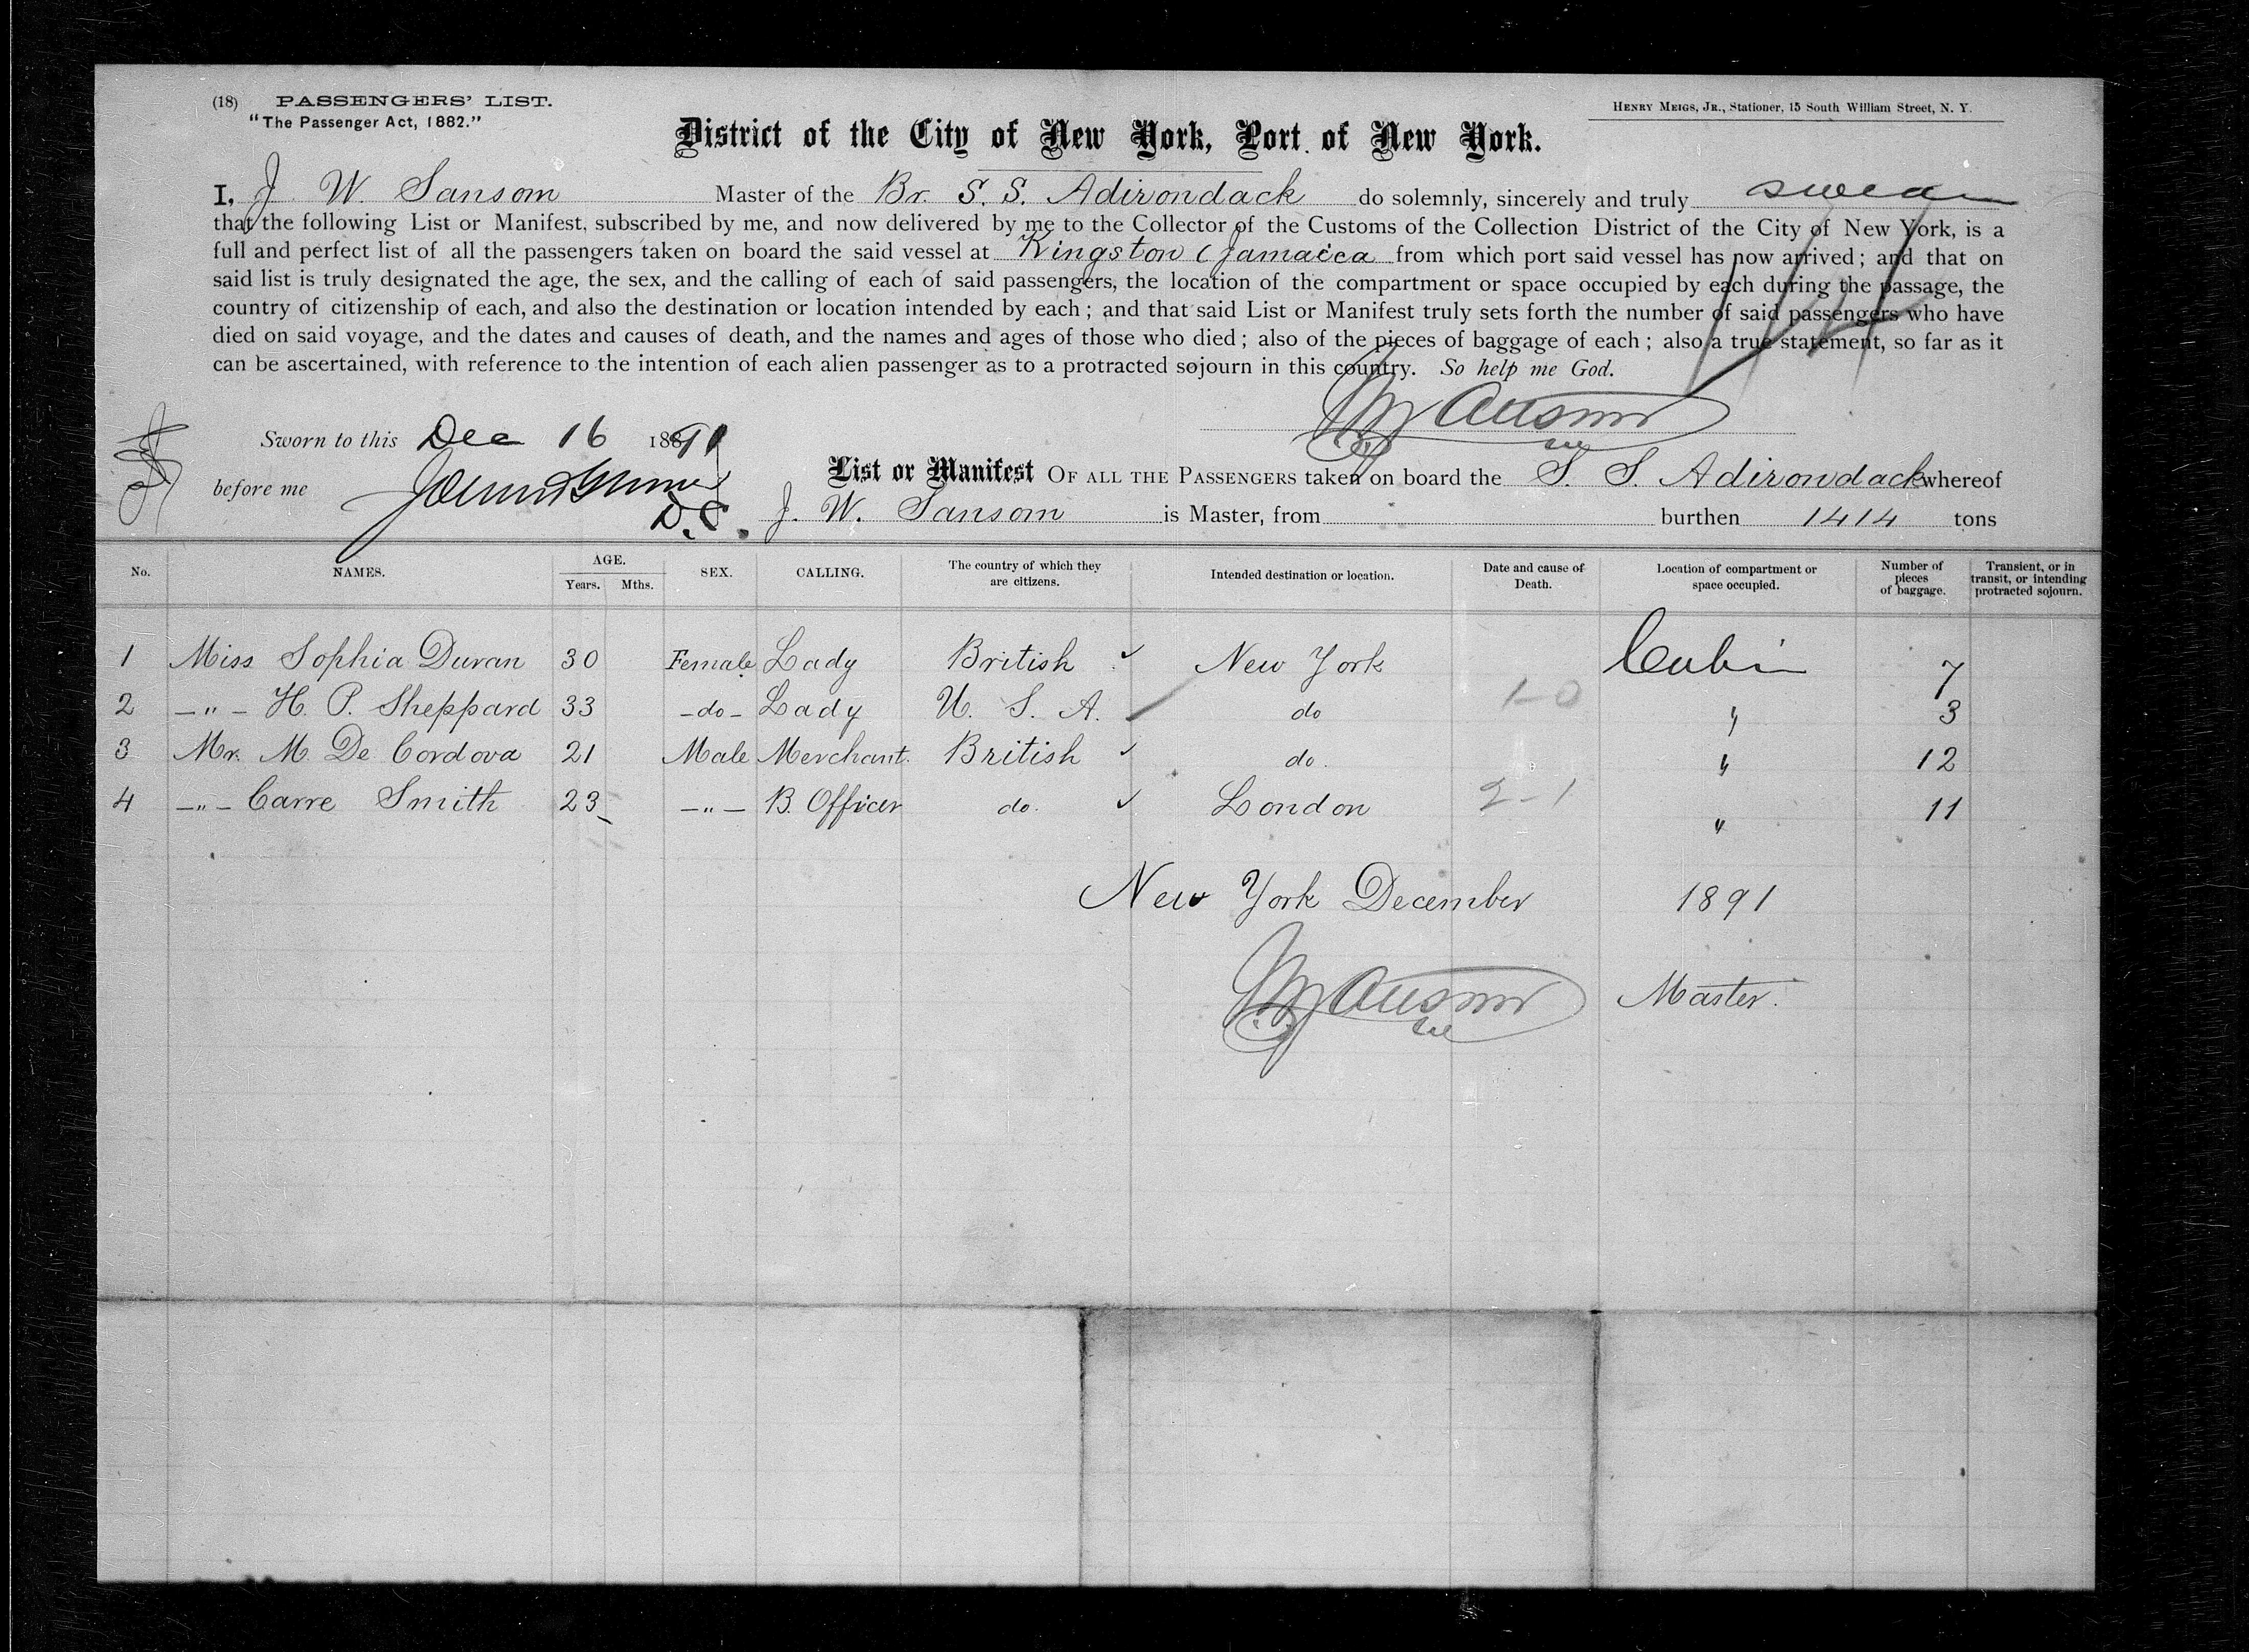 (18) PASSENGERS' LIST.
"The Passenger Act, 1882."
HENRY MEIGS, JR., Stationer, 15 South William Street, N. Y.
District of the City of New York, Port of New York.
I, J. W. Sansom Master of the Br. S. S. Adirondack do solemnly, sincerely and truly swear
that the following List or Manifest, subscribed by me, and now delivered by me to the Collector of the Customs of the Collection District of the City of New York, is a
full and perfect list of all the passengers taken on board the said vessel at Kingston (Jamaica from which port said vessel has now arrived; and that on
said list is truly designated the age, the sex, and the calling of each of said passengers, the location of the compartment or space occupied by each during the passage, the
country of citizenship of each, and also the destination or location intended by each; and that said List or Manifest truly sets forth the number of said passengers who have
died on said voyage, and the dates and causes of death, and the names and ages of those who died; also of the pieces of baggage of each; also a true statement, so far as it
can be ascertained, with reference to the intention of each alien passenger as to a protracted sojourn in this country. So help me God.
Sworn to this Dec 16 1891
before me
D.C.
List or Manifest OF ALL THE PASSENGERS taken on board the S. S. Adirondack whereof
J. W. Sansom is Master, from burthen 1414 tons
No. NAMES. AGE. Years. Mths. SEX. CALLING. The country of which they are citizens. Intended destination or location. Date and cause of Death. Location of compartment or space occupied. Number of pieces of baggage. Transient, or in transit, or intending protracted sojourn.
1 Miss Sophia Duran 30 Female Lady British ✓ New York Cabin 7
2 —"— H. P. Sheppard 33 —do— Lady U. S. A. do 1-0 " 3
3 Mr. M. De Cordova 21 Male Merchant. British ✓ do. " 12
4 —"— Carre Smith 23 —"— B. Officer do. ✓ London 2-1 " 11
New York December 1891
Master.